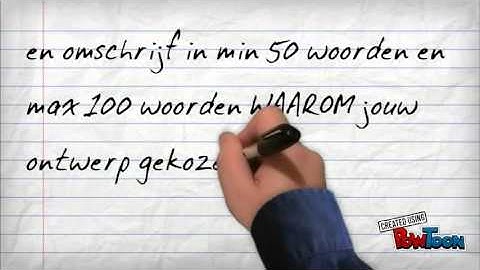 en omschrijf in min 50 woorden en
max 100 woorden WAAROM jouw
ontwerp gekoze
CREATED USING
POWTOON